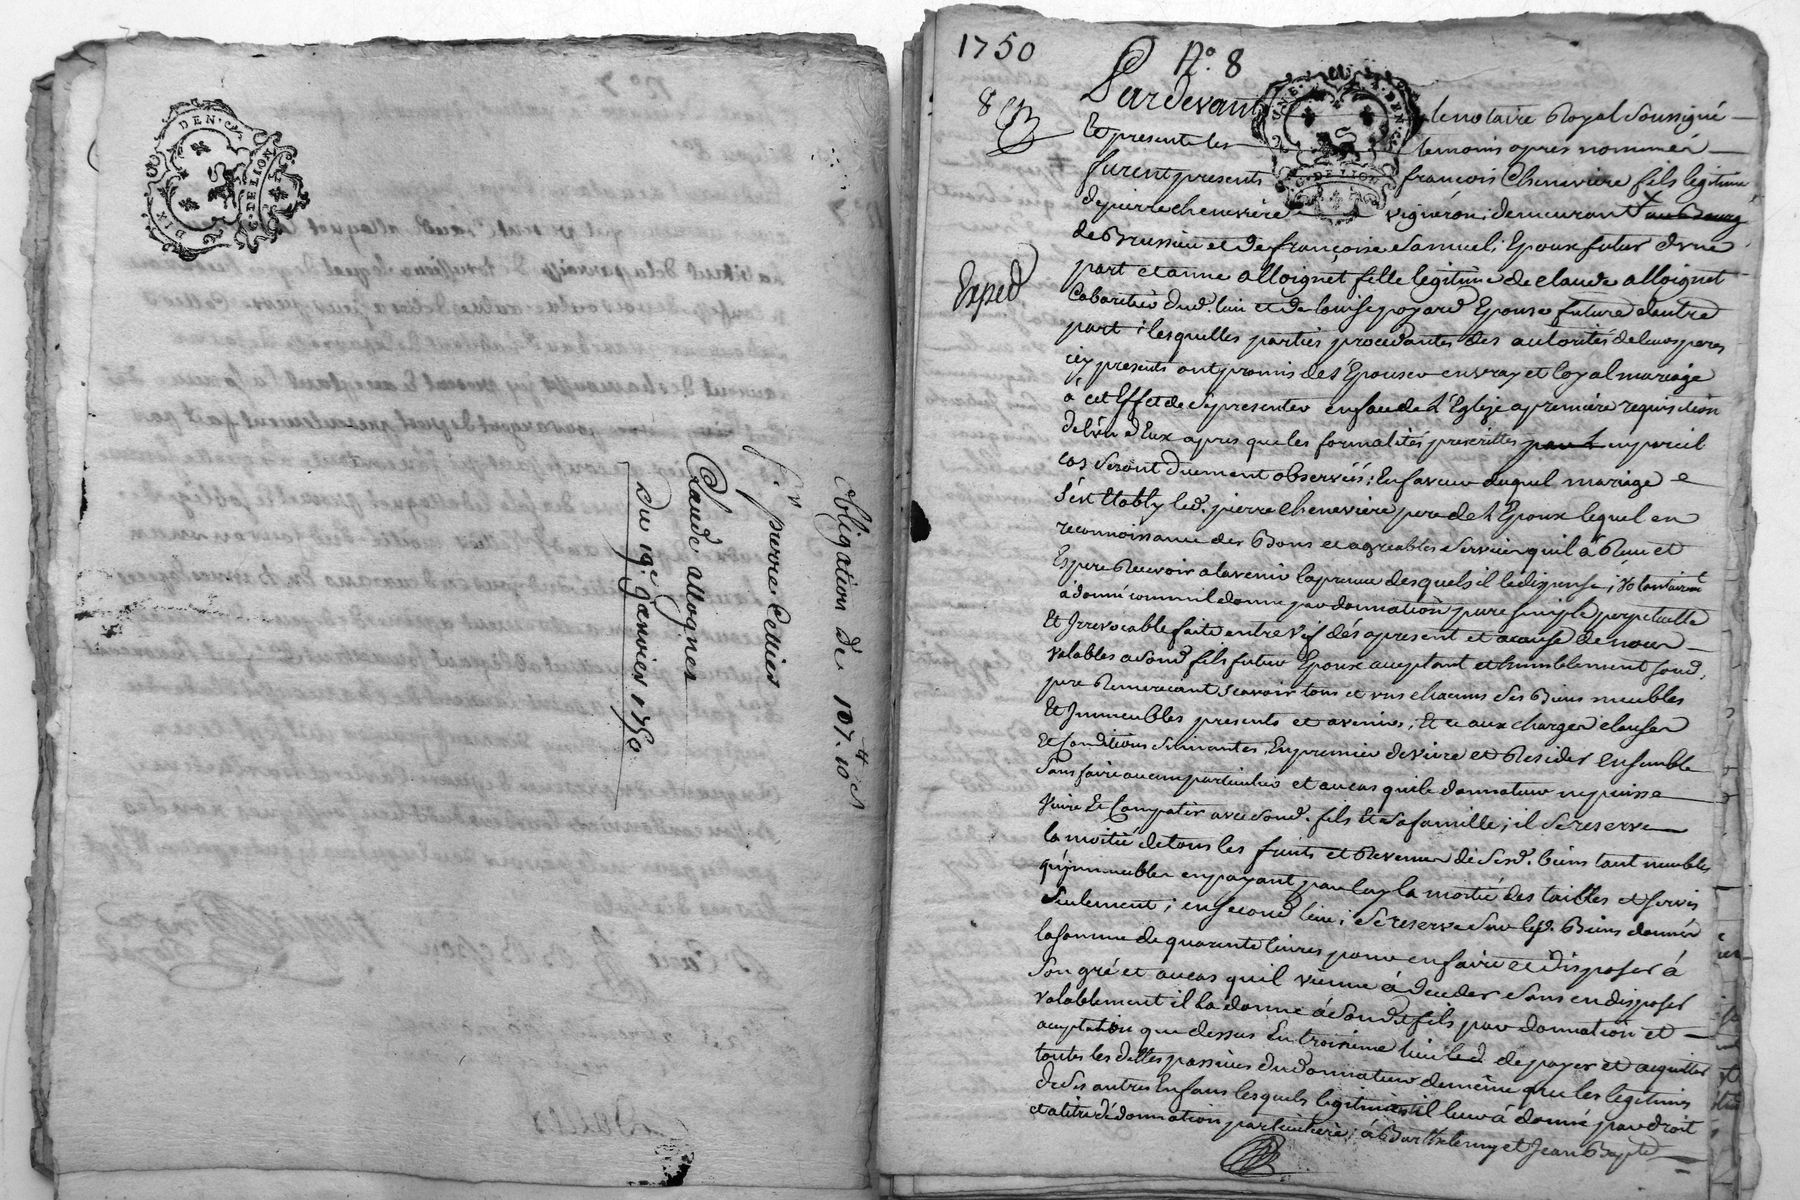 DIX DEN.ᶜ
G. DE LION
Obligation de 107.ᵗᵗ 10ˢ
pʳ. pierre Cellier
Claude allognet
Du 19.ᵉ janvier 1750
1750
N.º 8
8
Expedᵉ
Pardevant le notaire Royal soussigné
Et presents les temoins apres nommés
furent presents francois Chenevière fils legitime
de pierre chenevière vigneron demeurant au Bourg
de Brussieu et de françoise Samuel, Epoux futur d'une
part et anne alloignet fille legitime de claude alloignet
Cabaretier dud. lieu et de louise poyard Epouse future d'autre
part ; lesquelles parties procedantes des autorités de leurs peres
icy presents ont promis de s'Epouser en vray et loyal mariage
à cet Effet de se presenter en face de l'Eglise a première requisition
de l'un d'Eux apres que les formalités prescrittes en pareil
cas seront duement observéés ; En faveur duquel mariage
s'est Etably led. pierre chenevière pere de l'Epoux lequel en
reconnoissance des Bons et agreables services qu'il à Reçu et
Espere Recevoir a l'avenir la preuve desquels il le dispense ; volontairemᵗ
à donné comme il donne par donnation pure simple perpetuelle
Et Irrevocable faite entre vif dés apresent et a cause de nour
valables a sond. fils futur Epoux acceptant et humblement sond.
pere Remerciant scavoir tous et uns chacuns ses Biens meubles
Et Immeubles presents et avenirs, Et ce aux charges clauses
Et Conditions suivantes, En premier de vivre et Resider Ensemble
sans faire aucun particulier et au cas que le donnateur ne puisse
vivre Et Compatir avec sond. fils Et sa famille ; il se reserve
la moitié de tous les fruits et Revenus de sesd. biens tant meubles
qu'immeubles en payant par luy la moitié des tailles et servis
seulement ; en second lieu ; se reserve sur lesd. Biens donnés
la somme de quarente livres pour en faire et disposer à
son gré et au cas qu'il vienne à deceder sans en disposer
valablement il la donne à sond. fils par donnation et
acceptation que dessus En troisième lieu led. de payer et acquitter
toutes les dettes passives du donnateur de même que les legitimes
de ses autres Enfans lesquels legitimes il leur à donné par droit
et a titre de donnation particulière ; à Barthelemy et Jean Baptᵉ